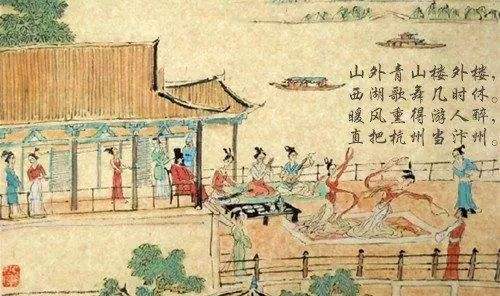 山外青山楼外楼
西湖歌舞几时休。
暖风熏得游人醉，
直把杭州当汴州。